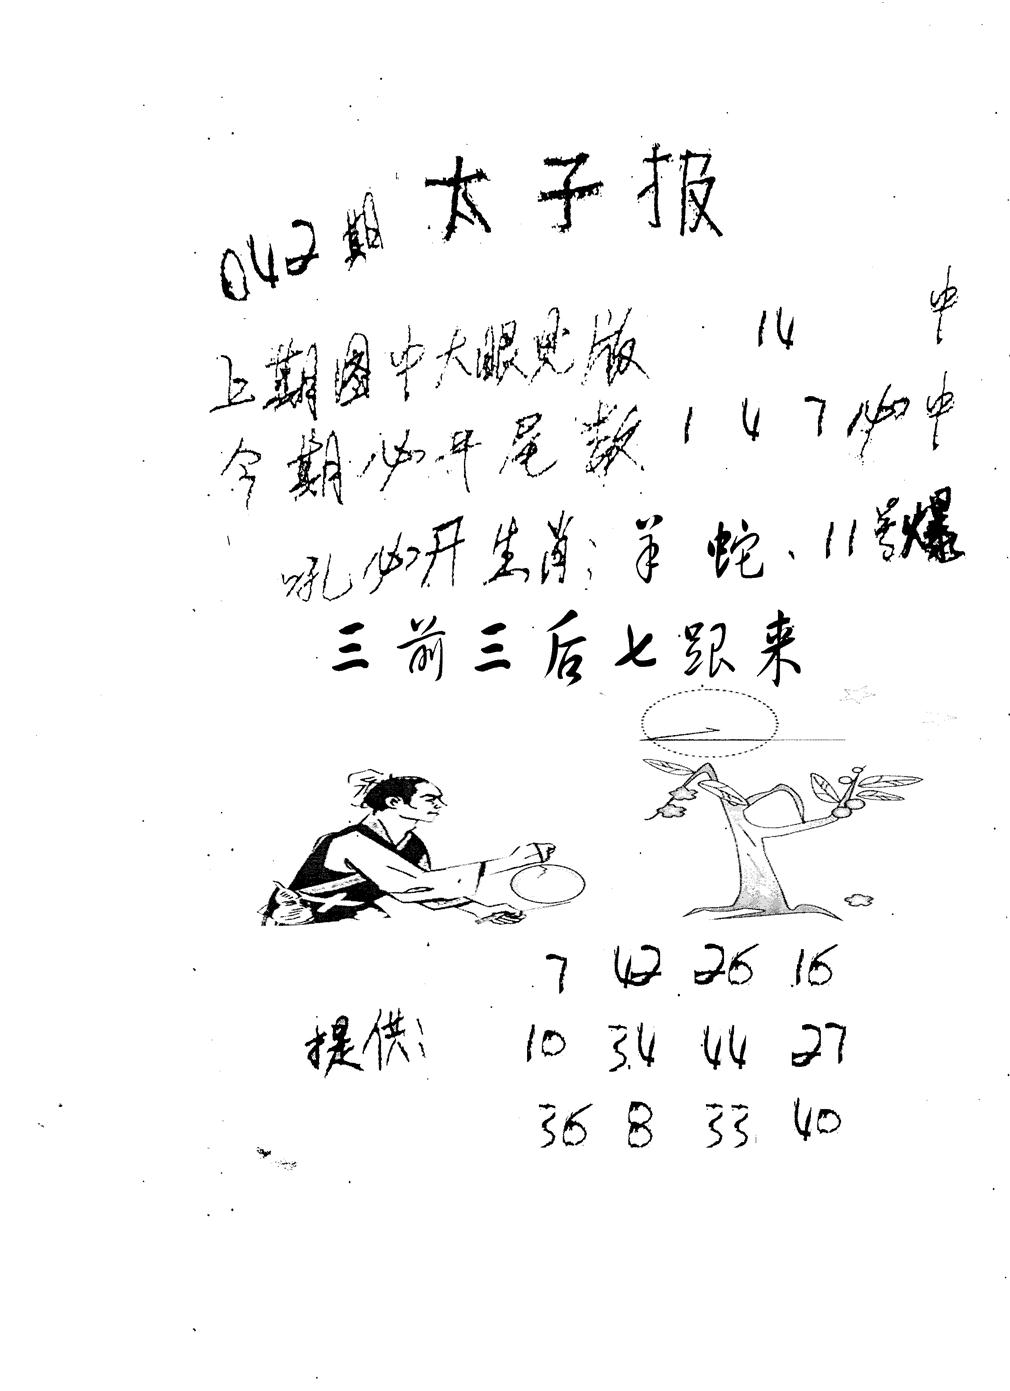 太子报
042期
上期图中大眼见版 14 中
今期必开尾数 1 4 7 必中
必开生肖: 羊 蛇、11号爆
三前三后七跟来
7 42 26 16
提供: 10 34 44 27
36 8 33 40